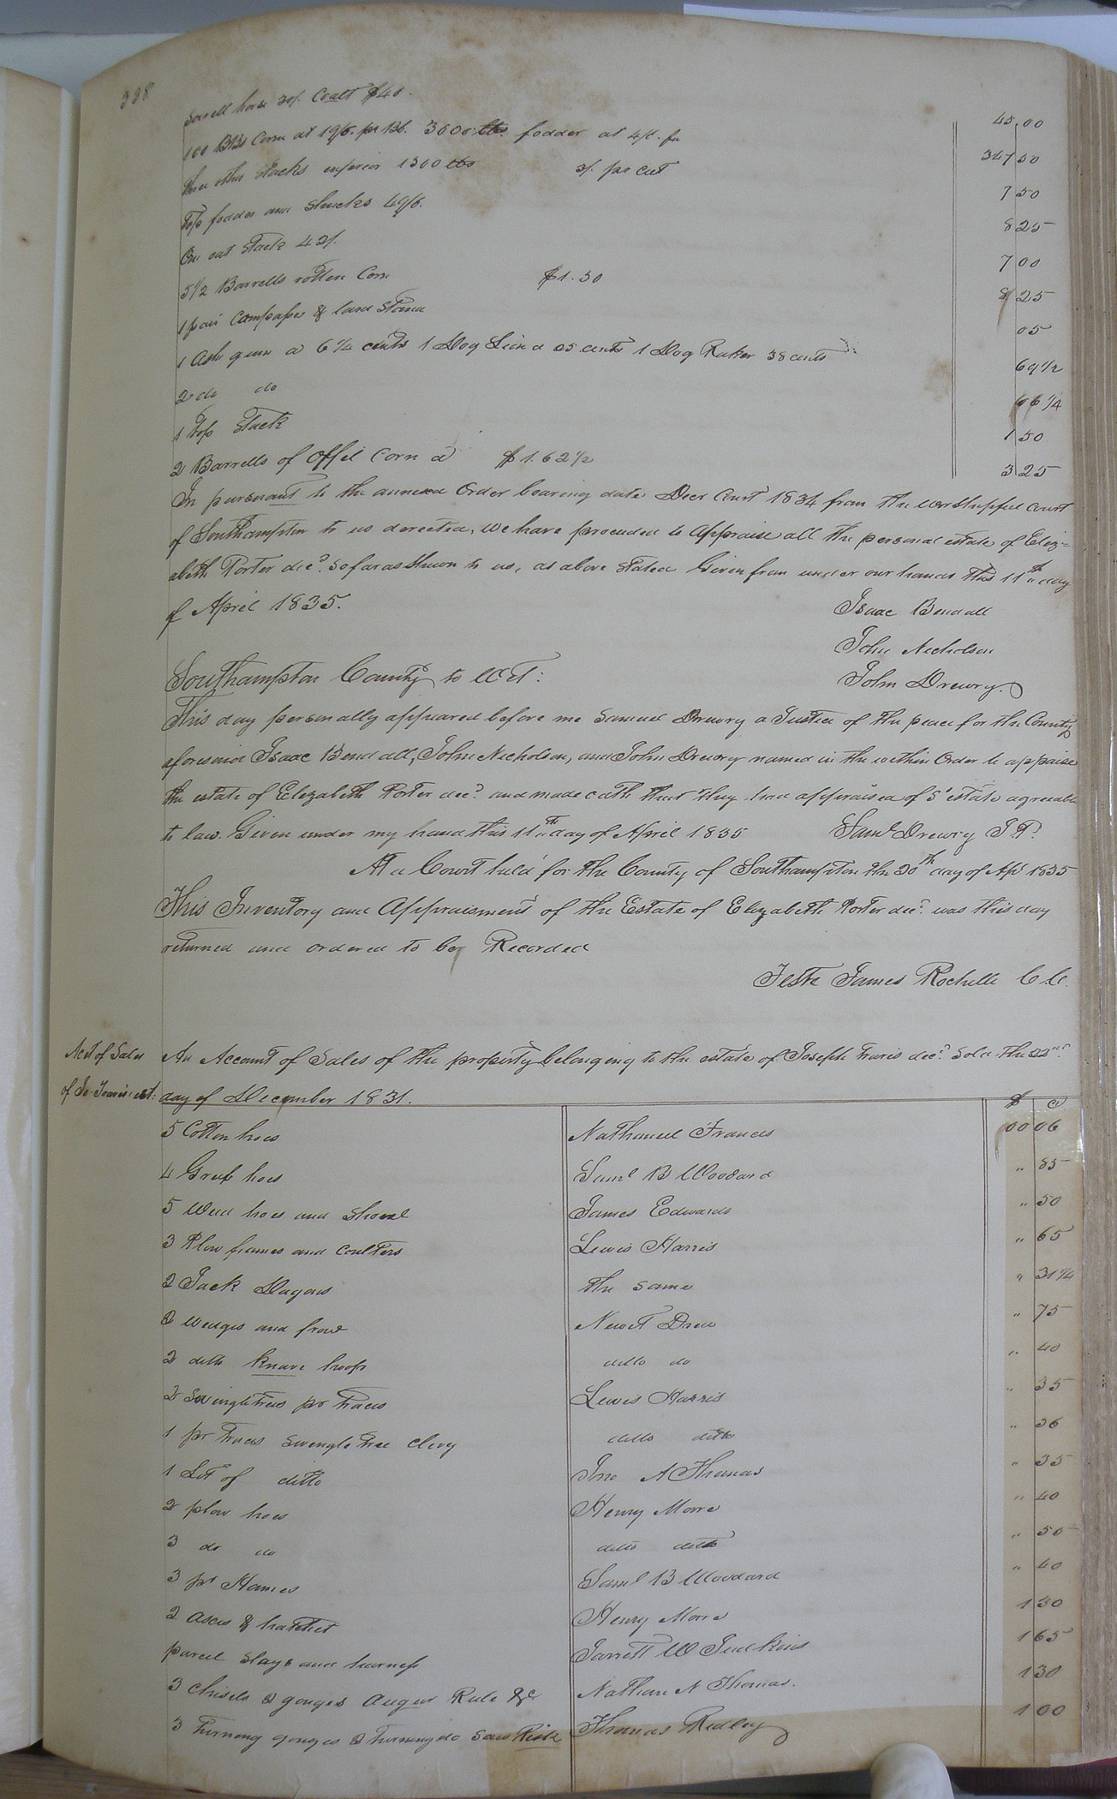 338
Sorrell horse 20/. Coalt $40. 45.00
100 Bbls Corn at 19/6. pr Bbl. 3600 lbs fodder at 4/. pr 347 50
three other stacks inferior 1300 lbs 3/. pr cut 7 50
Top fodder and shucks 49/6. 8 25
One oat stack 42/. 7 00
5 1/2 Barrells rotten Corn $1.50 8 25
1 pair Compases & land Stand 05
1 Ash gum a 6 1/4 cents 1 Dog 25 cents 1 Dog Raker 38 cents 69 1/2
2 do do 06 1/4
1 Top Stack 1 50
2 Barrells of Offil Corn a $1.62 1/2 3 25
In persuant to the annexed Order bearing date Decr Court 1834 from the worshipful court
of Southampton to us derected, we have proceeded to Appraise all the personal estate of Eliz-
abeth Porter decd. So far as Shewn to us, as above Stated Given from under our hands this 11th day
of April 1835. Isaac Bendall
John Nicholson
Southampton County to Wit: John Drewry.
This day personally appeared before me Samuel Drewry a Justice of the peace for the County
aforesaid Isaac Bendall, John Nicholson, and John Drewry named in the within Order to appraise
the estate of Elizabeth Porter decd. and made oath that they had appraised of sd estate agreeable
to law. Given under my hand this 11th day of April 1835 Saml Drewry J P.
At a Court held for the County of Southampton the 20th day of Apl 1835
This Inventory and Appraisment of the Estate of Elizabeth Porter decd. was this day
returned and ordered to be Recorded
Teste James Rochelle C C.
Acct of Sales An Account of Sales of the property belonging to the estate of Joseph Travis decd. Sold the 22nd.
of Jo Travis' est: day of December 1831.
$ c
5 Cotton hoes Nathaniel Francis 00 06
4 Grub hoes Saml B Woodard " 85
5 Weed hoes and Shovel James Edwards " 50
3 Plow frames and Coulters Lewis Harris " 65
2 Jack Dagons the same " 31 1/4
2 Wedges and frow Newit Drew " 75
2 ditto knave hoops ditto do " 40
2 Swingletrees pr traces Lewis Harris " 35
1 pr Traces Swingle tree clevy ditto ditto " 36
1 Lot of ditto Jno A Thomas " 35
2 plow hoes Henry Moore " 40
3 do do ditto ditto " 50
3 pr Hames Saml B Woodard " 40
2 axes & hatchet Henry Moore 1 30
parcel Slays and harness Jarrett W Judkins 1 65
3 Chisels & gouges Augur Rule &c Nathan N Thomas. 1 30
3 Turning gouges & turning do Saw Thomas Ridley 1 00